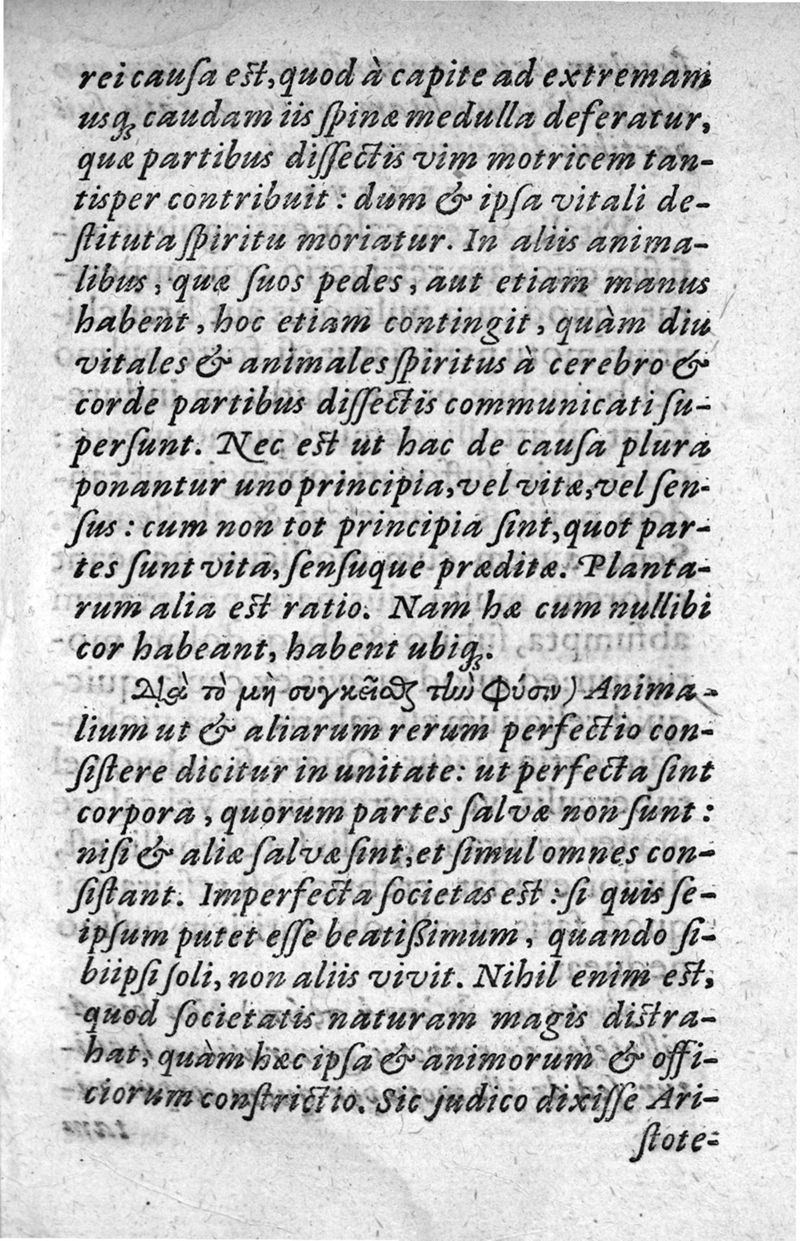 rei cauſa eſt, quod à capite ad extremam
usq; caudam iis ſpinæ medulla deferatur,
quæ partibus diſſectis vim motricem tan-
tisper contribuit : dum & ipſa vitali de-
ſtituta ſpiritu moriatur. In aliis anima-
libus, quæ ſuos pedes, aut etiam manus
habent, hoc etiam contingit, quàm diu
vitales & animales ſpiritus à cerebro &
corde partibus diſſectis communicati ſu-
perſunt. Nec est ut hac de cauſa plura
ponantur uno principia, vel vitæ, vel ſen-
ſus : cum non tot principia ſint, quot par-
tes ſunt vita, ſenſuque præditæ. Planta-
rum alia est ratio. Nam hæ cum nullibi
cor habeant, habent ubiq;.
Διὰ τὸ μὴ συγκεῖσθαι τὴν φύσιν) Anima-
lium ut & aliarum rerum perfectio con-
ſiſtere dicitur in unitate: ut perfecta ſint
corpora, quorum partes ſalvæ non ſunt :
niſi & aliæ ſalvæ ſint, et ſimul omnes con-
ſiſtant. Imperfecta ſocietas est : ſi quis ſe-
ipſum putet eſſe beatißimum, quando ſi-
bi ipſi ſoli, non aliis vivit. Nihil enim est,
quod ſocietatis naturam magis diſtra-
hat, quàm hæc ipſa & animorum & offi-
ciorum conſtrictio. Sic judico dixiſſe Ari-
ſtote-